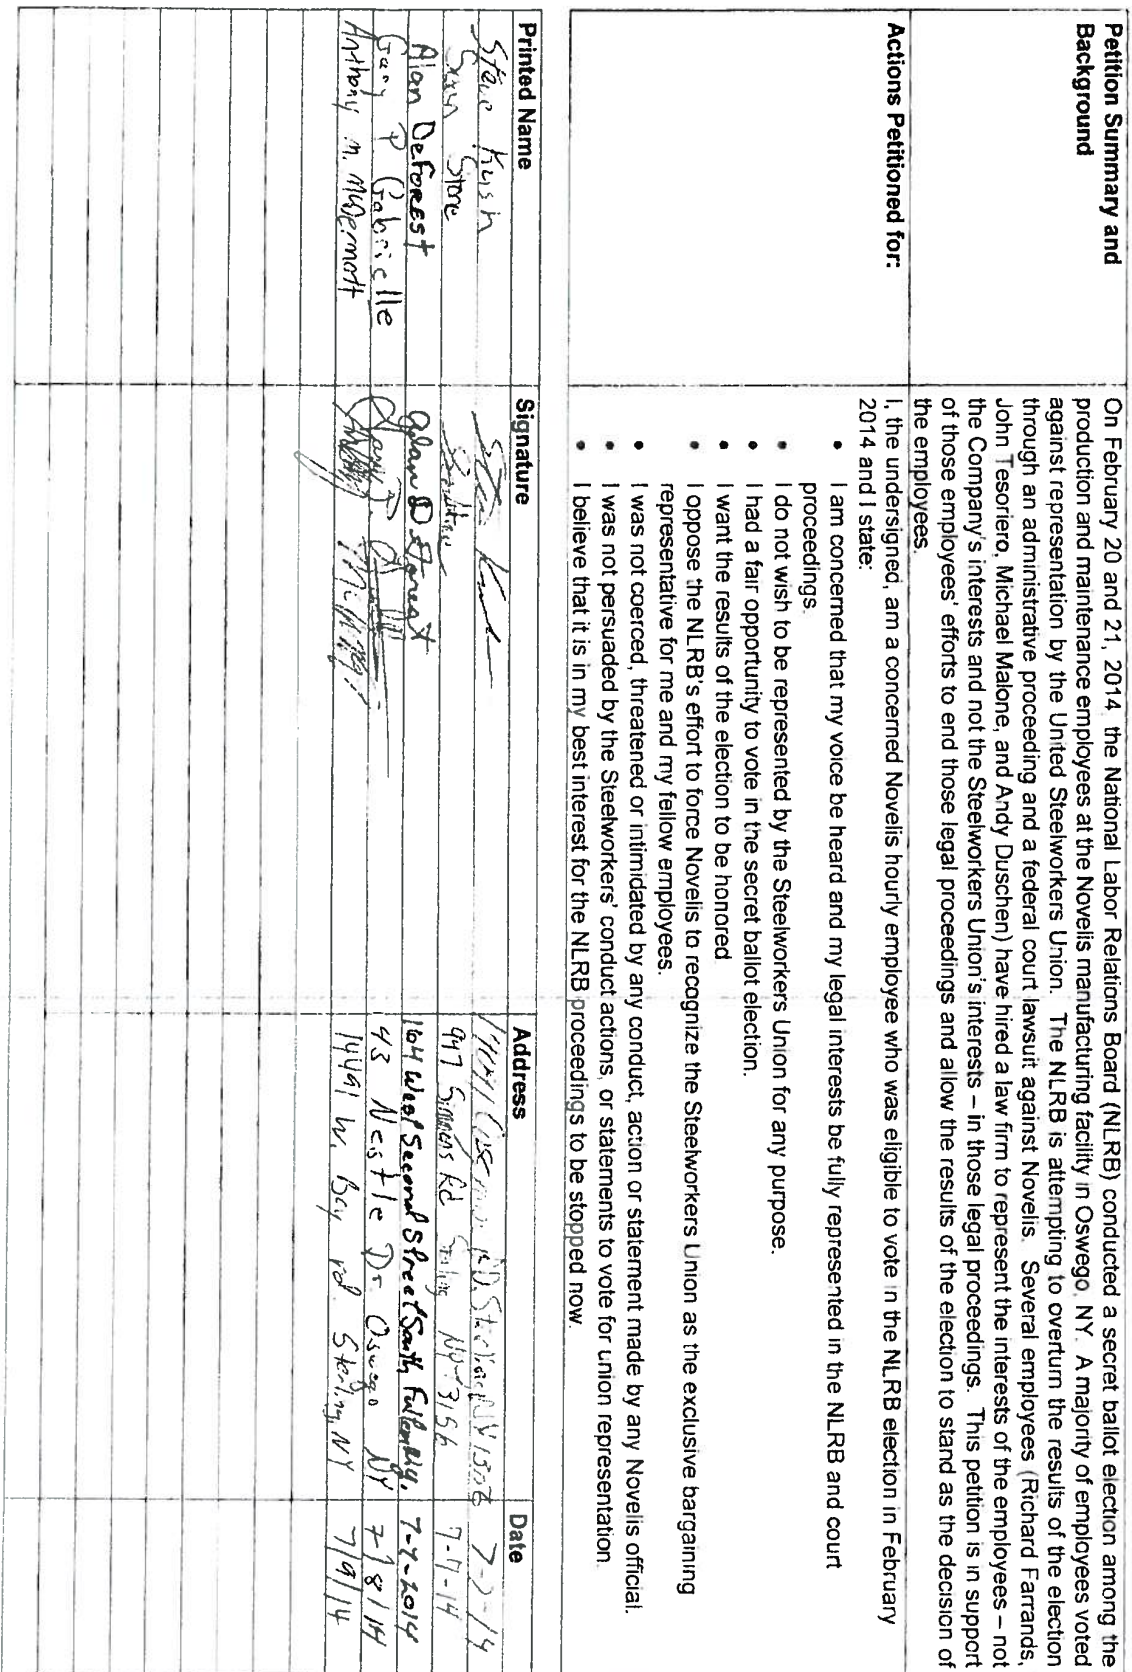 Petition Summary and
Background
On February 20 and 21, 2014, the National Labor Relations Board (NLRB) conducted a secret ballot election among the
production and maintenance employees at the Novelis manufacturing facility in Oswego, NY. A majority of employees voted
against representation by the United Steelworkers Union. The NLRB is attempting to overturn the results of the election
through an administrative proceeding and a federal court lawsuit against Novelis. Several employees (Richard Farrands,
John Tesoriero, Michael Malone, and Andy Duschen) have hired a law firm to represent the interests of the employees – not
the Company's interests and not the Steelworkers Union's interests – in those legal proceedings. This petition is in support
of those employees' efforts to end those legal proceedings and allow the results of the election to stand as the decision of
the employees.
Actions Petitioned for:
I, the undersigned, am a concerned Novelis hourly employee who was eligible to vote in the NLRB election in February
2014 and I state:
• I am concerned that my voice be heard and my legal interests be fully represented in the NLRB and court
proceedings.
• I do not wish to be represented by the Steelworkers Union for any purpose.
• I had a fair opportunity to vote in the secret ballot election.
• I want the results of the election to be honored
• I oppose the NLRB's effort to force Novelis to recognize the Steelworkers Union as the exclusive bargaining
representative for me and my fellow employees.
• I was not coerced, threatened or intimidated by any conduct, action or statement made by any Novelis official.
• I was not persuaded by the Steelworkers' conduct actions, or statements to vote for union representation.
• I believe that it is in my best interest for the NLRB proceedings to be stopped now.
Printed Name Signature Address Date
Steve Kush RD. Sterling NY 7-7-14
Stone 947 Simmons Rd NY 13156 7-7-14
Alan DeForest Alan DeForest 164 West Second Street South Fulton Ny. 7-7-2014
Gary P Gabrielle 43 Nestle Dr Oswego NY 7/8/14
Anthony M. McDermott 14491 W. Bay rd. Sterling, NY 7/9/14